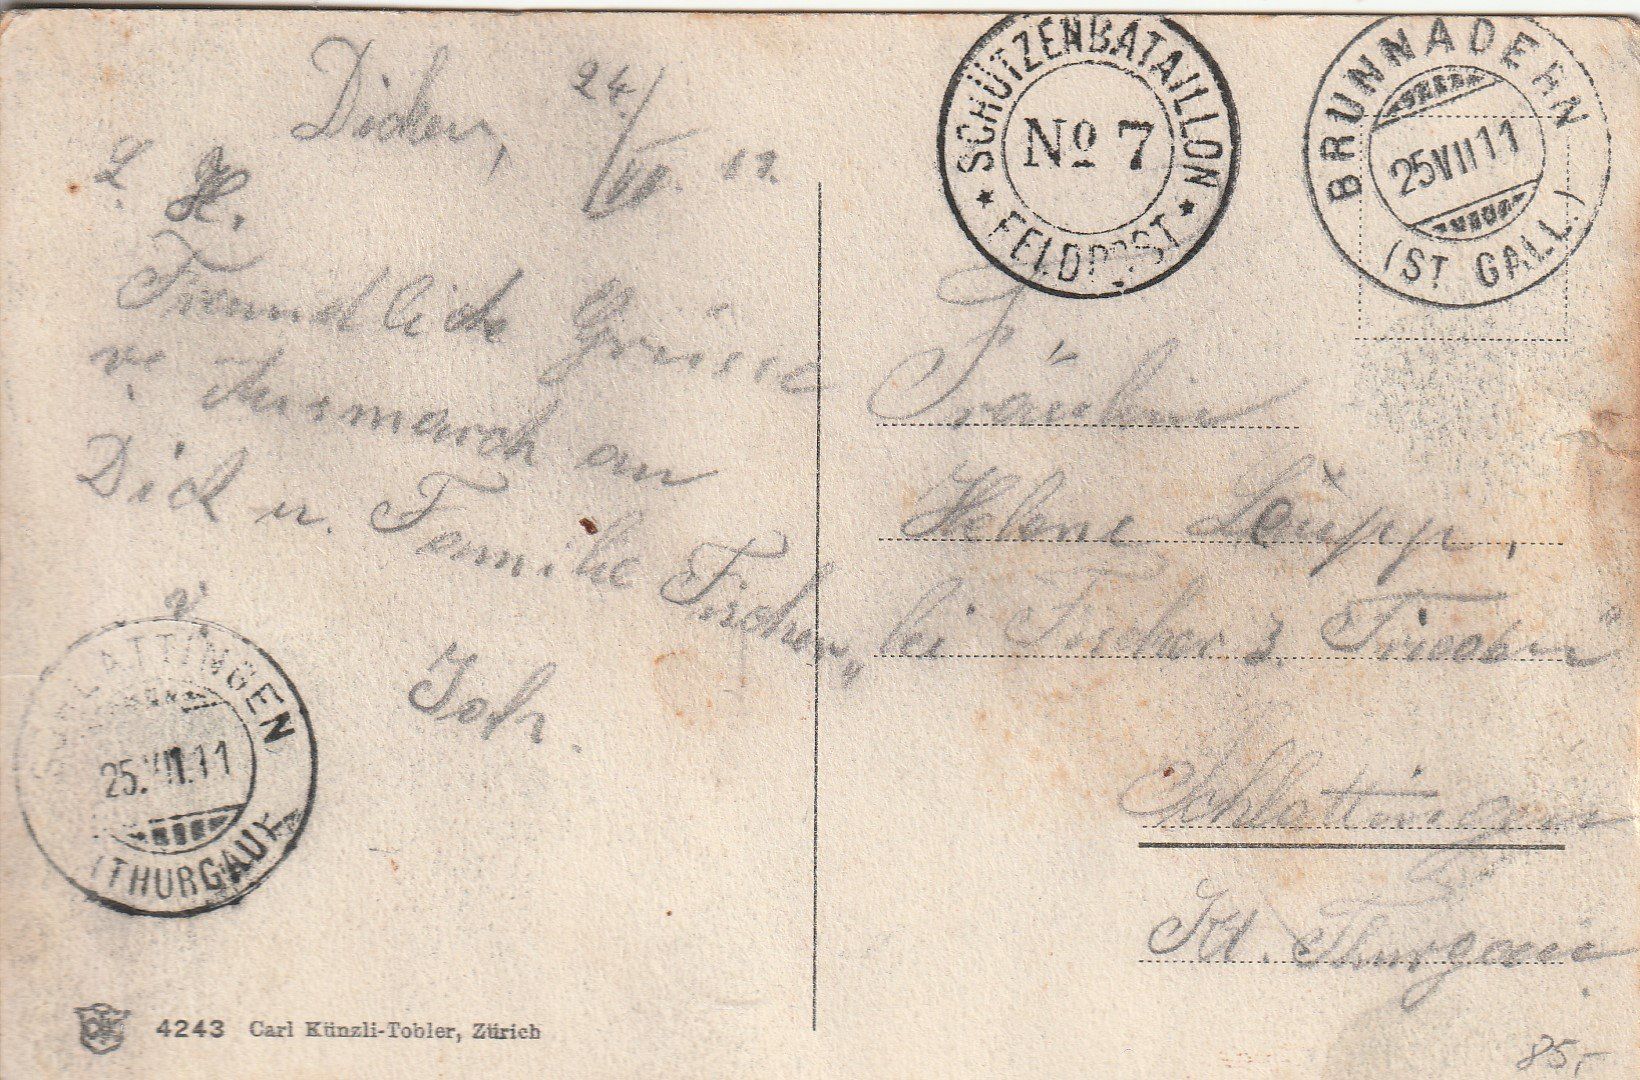 Dicken, 24./VII. 11.
L. H.
Freundliche Grüsse
v. Ausmarsch an
Dich u. Familie Fischer
v.
Joh.
SCHÜTZENBATAILLON
No 7
* FELDPOST *
BRUNNADERN
25.VII.11
(ST. GALL.)
Fräulein
Helene Leüpp,
bei Fischer z. „Frieden“
Schlattingen
Kt. Thurgau.
SCHLATTINGEN
25.VII.11
(THURGAU)
4243 Carl Künzli-Tobler, Zürich
85,-